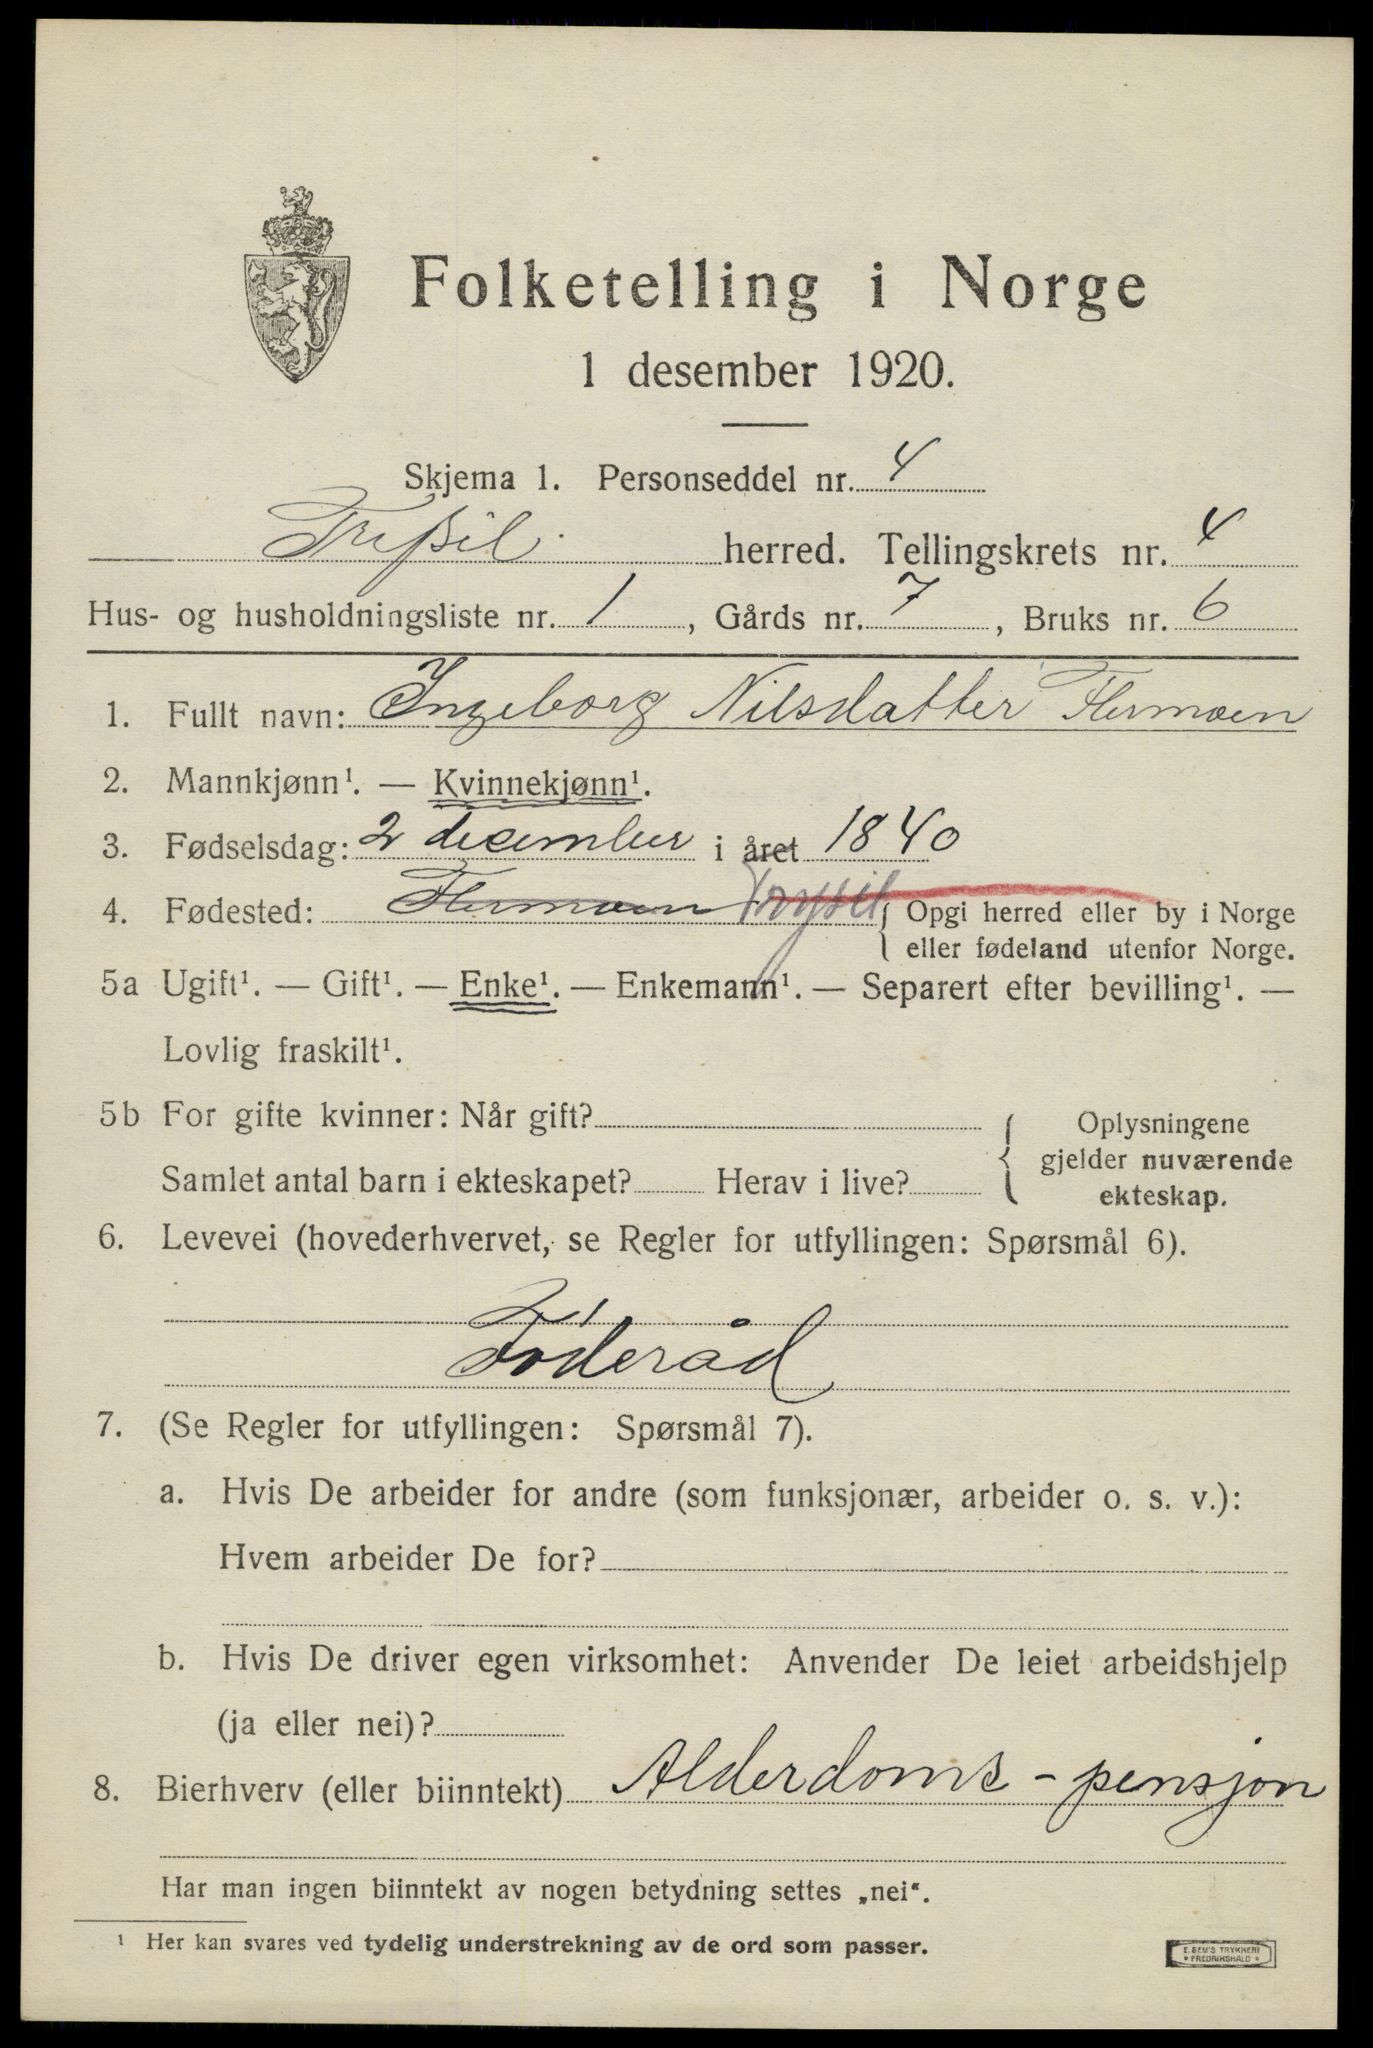 Folketelling i Norge
1 desember 1920.
Skjema 1. Personseddel nr. 4
Trysil herred. Tellingskrets nr. 4
Hus- og husholdningsliste nr. 1, Gårds nr. 7, Bruks nr. 6
1. Fullt navn: Ingeborg Nilsdatter Flermoen
2. Mannkjønn¹. — Kvinnekjønn¹.
3. Fødselsdag: 2 december i året 1840
4. Fødested: Flermoen Trysil { Opgi herred eller by i Norge
eller fødeland utenfor Norge.
5a Ugift¹. — Gift¹. — Enke¹. — Enkemann¹. — Separert efter bevilling¹. —
Lovlig fraskilt¹.
5b For gifte kvinner: Når gift?
Samlet antal barn i ekteskapet? Herav i live?
{ Oplysningene
gjelder nuværende
ekteskap.
6. Levevei (hovederhvervet, se Regler for utfyllingen: Spørsmål 6).
Föderåd
7. (Se Regler for utfyllingen: Spørsmål 7).
a. Hvis De arbeider for andre (som funksjonær, arbeider o. s. v.):
Hvem arbeider De for?
b. Hvis De driver egen virksomhet: Anvender De leiet arbeidshjelp
(ja eller nei)?
8. Bierhverv (eller biinntekt) Alderdoms-pensjon
Har man ingen biinntekt av nogen betydning settes „nei“.
¹ Her kan svares ved tydelig understrekning av de ord som passer.
E. SEM'S TRYKKERI
• FREDRIKSHALD •